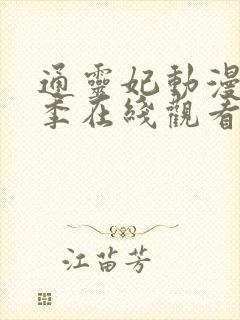 通靈妃動漫
季在綫觀看
江苗芳